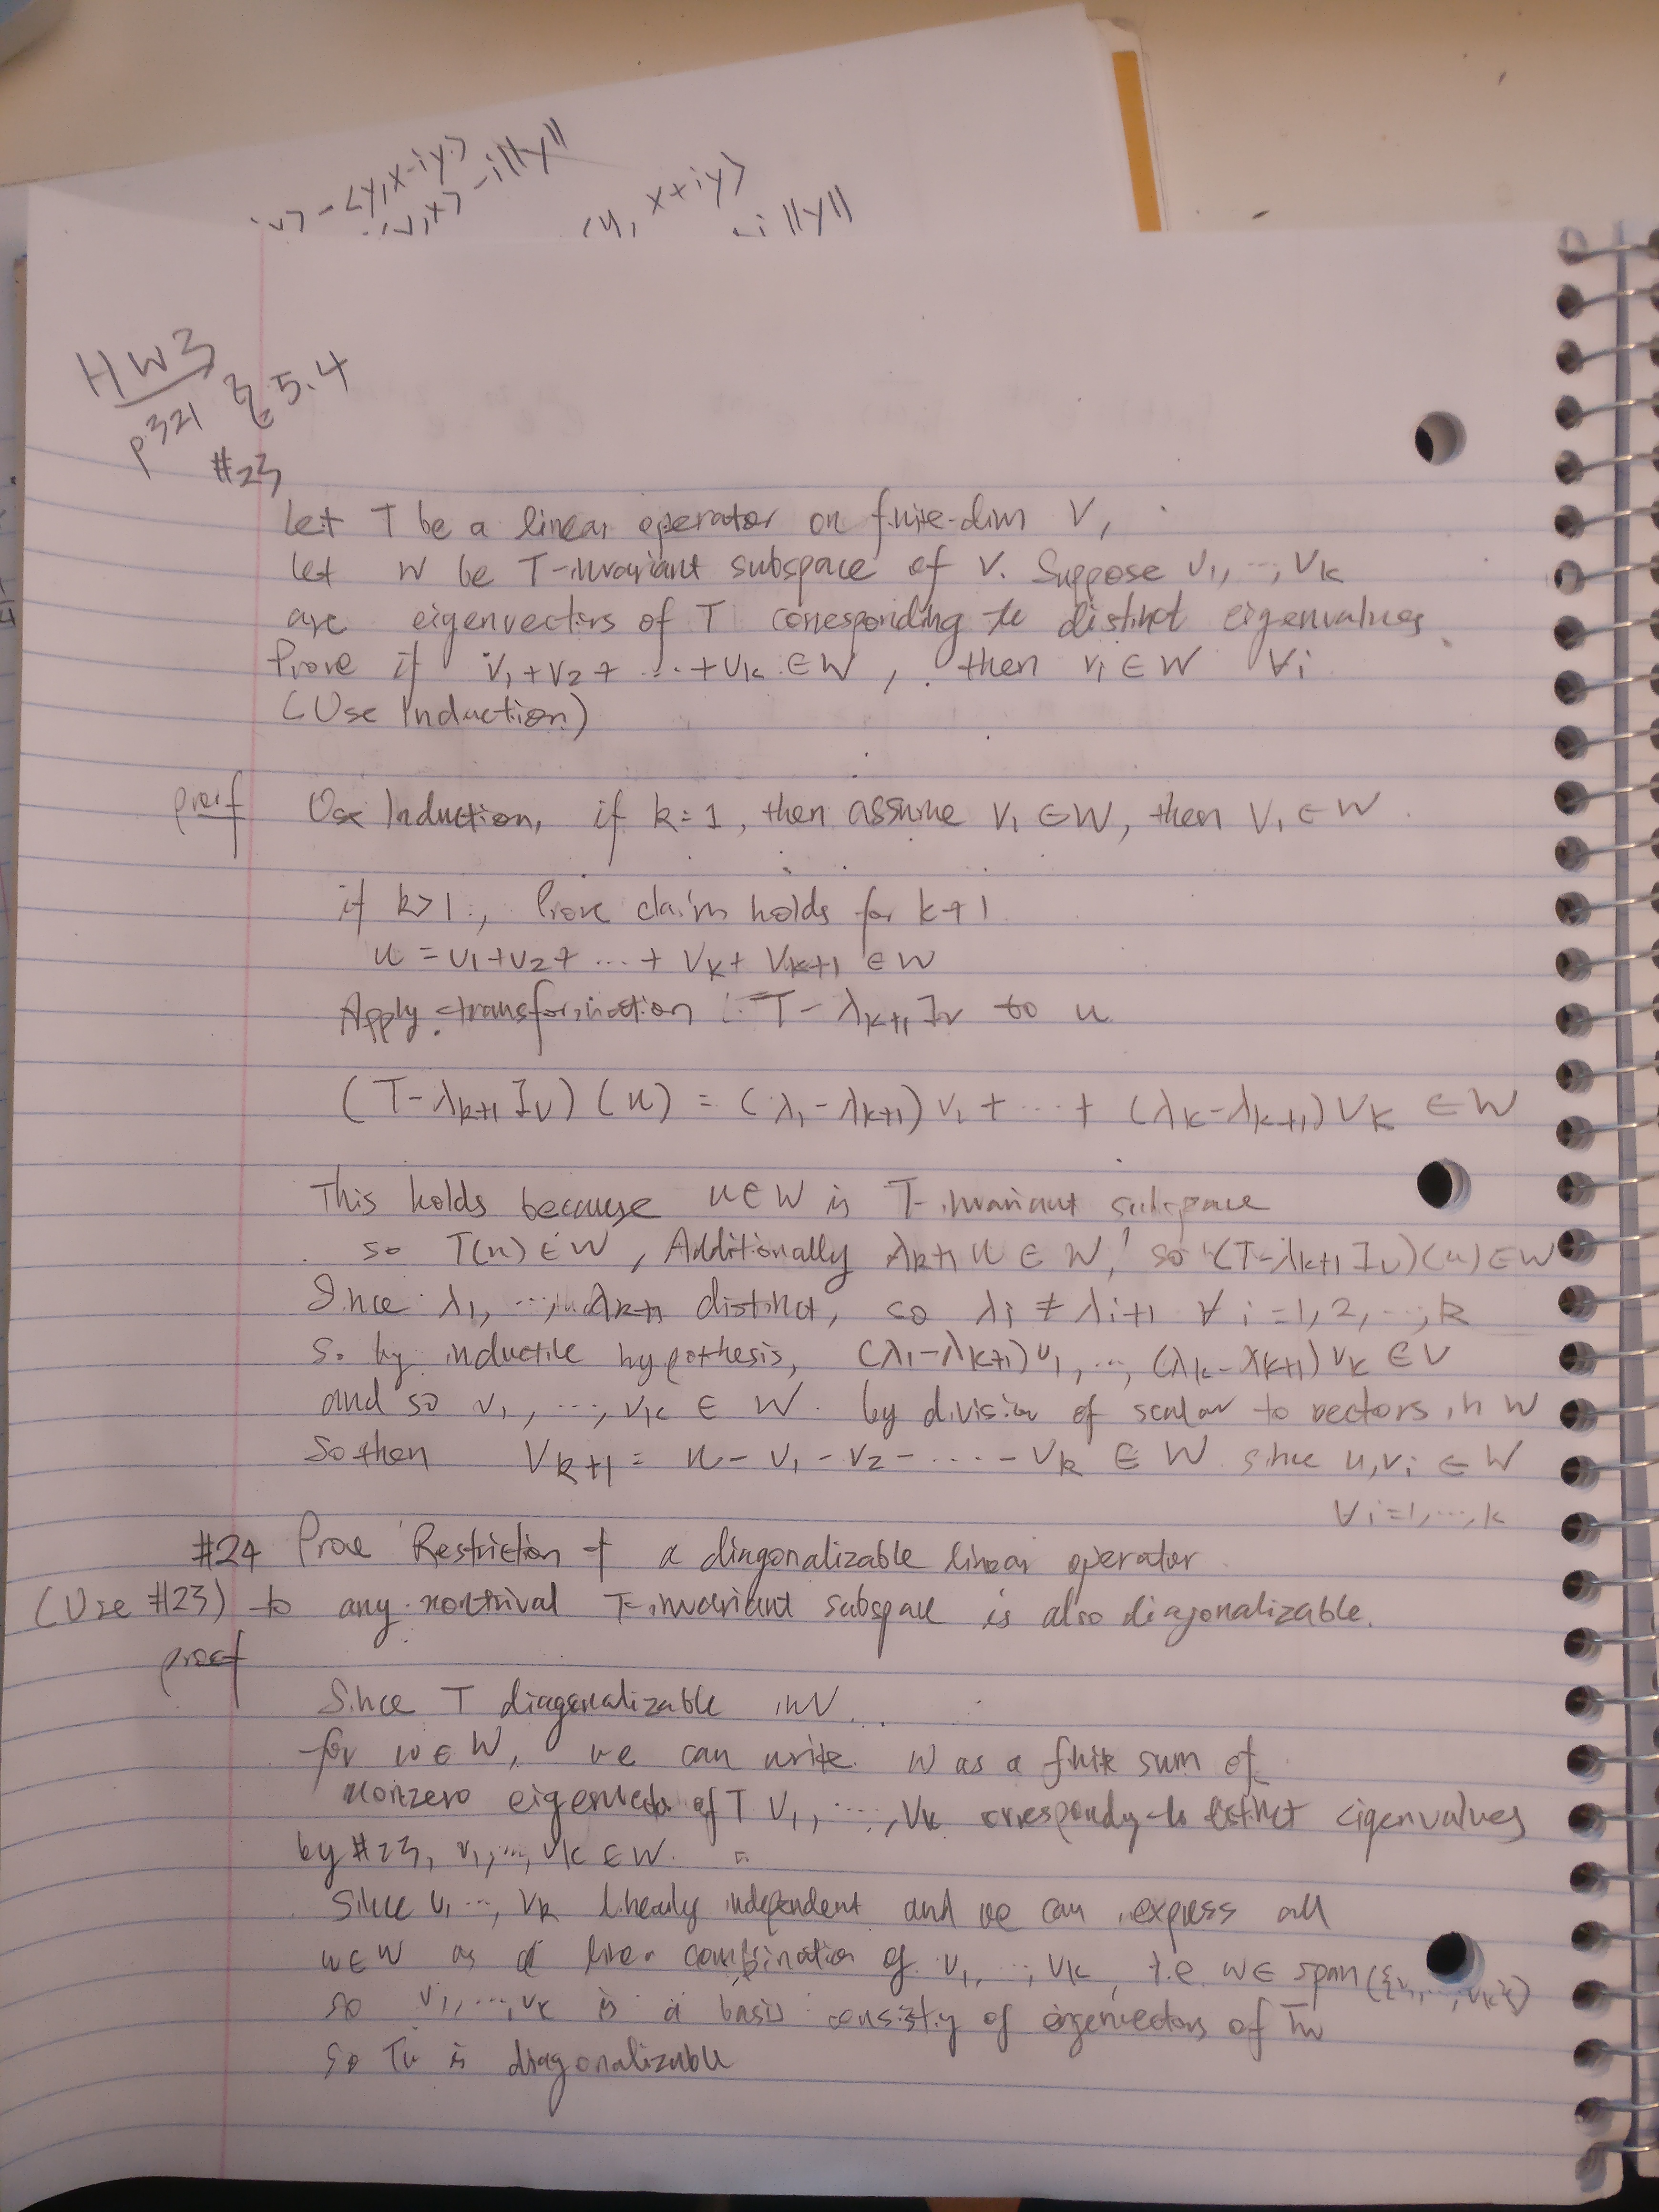 - <y, x-iy>
- i||y||
x+iy>
-i ||y||
HW3
p321 § 5.4
#23
Let T be a linear operator on finite-dim V,
let W be T-invariant subspace of V. Suppose v₁, ..., vₖ
are eigenvectors of T corresponding to distinct eigenvalues.
Prove if v₁+v₂+ ... +vₖ ∈ W, then vᵢ ∈ W ∀i
(Use Induction)
proof Use Induction, if k=1, then assume v₁ ∈ W, then v₁ ∈ W.
if k>1, Prove claim holds for k+1
u = v₁+v₂+ ... + vₖ + vₖ₊₁ ∈ W
Apply transformation : T - λₖ₊₁ Iᵥ to u
(T-λₖ₊₁ Iᵥ)(u) = (λ₁-λₖ₊₁)v₁ + ... + (λₖ-λₖ₊₁)vₖ ∈ W
This holds because u ∈ W is T-invariant subspace
so T(u) ∈ W, Additionally λₖ₊₁ u ∈ W, so (T-λₖ₊₁ Iᵥ)(u) ∈ W
Since λ₁, ..., λₖ₊₁ distinct, so λᵢ ≠ λᵢ₊₁ ∀ i=1,2,...,k
So by inductive hypothesis, (λ₁-λₖ₊₁)v₁, ..., (λₖ-λₖ₊₁)vₖ ∈ V
and so v₁, ..., vₖ ∈ W. by division of scalar to vectors in W
So then vₖ₊₁ = u - v₁ - v₂ - .... - vₖ ∈ W since u, vᵢ ∈ W
∀ i=1,...,k
#24 Prove Restriction of a diagonalizable linear operator
(Use #23) to any nontrival T-invariant subspace is also diagonalizable.
proof
Since T diagonalizable in V
for w ∈ W, we can write w as a finite sum of
nonzero eigenvectors of T v₁, ..., vₖ to distinct eigenvalues
by #23, v₁, ..., vₖ ∈ W.
Since v₁ ..., vₖ linearly independent and we can express all
w ∈ W as a linear combination of v₁, ..., vₖ, i.e. w ∈ span({v₁, ..., vₖ})
so v₁, ..., vₖ is a basis of eigenvectors of Tw
so Tw is diagonalizable